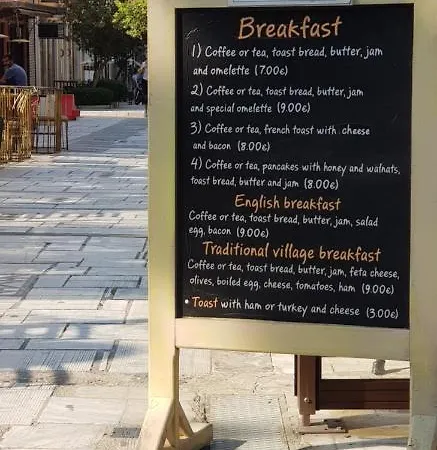 Breakfast
1) Coffee or tea, toast bread, butter, jam
and omelette (7.00€)
2) Coffee or tea, toast bread, butter, jam
and special omelette (9.00€)
3) Coffee or tea, french toast with cheese
and bacon (8.00€)
4) Coffee or tea, pancakes with honey and walnats,
toast bread, butter and jam (8.00€)
English breakfast
Coffee or tea, toast bread, butter, jam, salad
egg, bacon (9.00€)
Traditional village breakfast
Coffee or tea, toast bread, butter, jam, feta cheese,
olives, boiled egg, cheese, tomatoes, ham (9.00€)
• Toast with ham or turkey and cheese (3.00€)